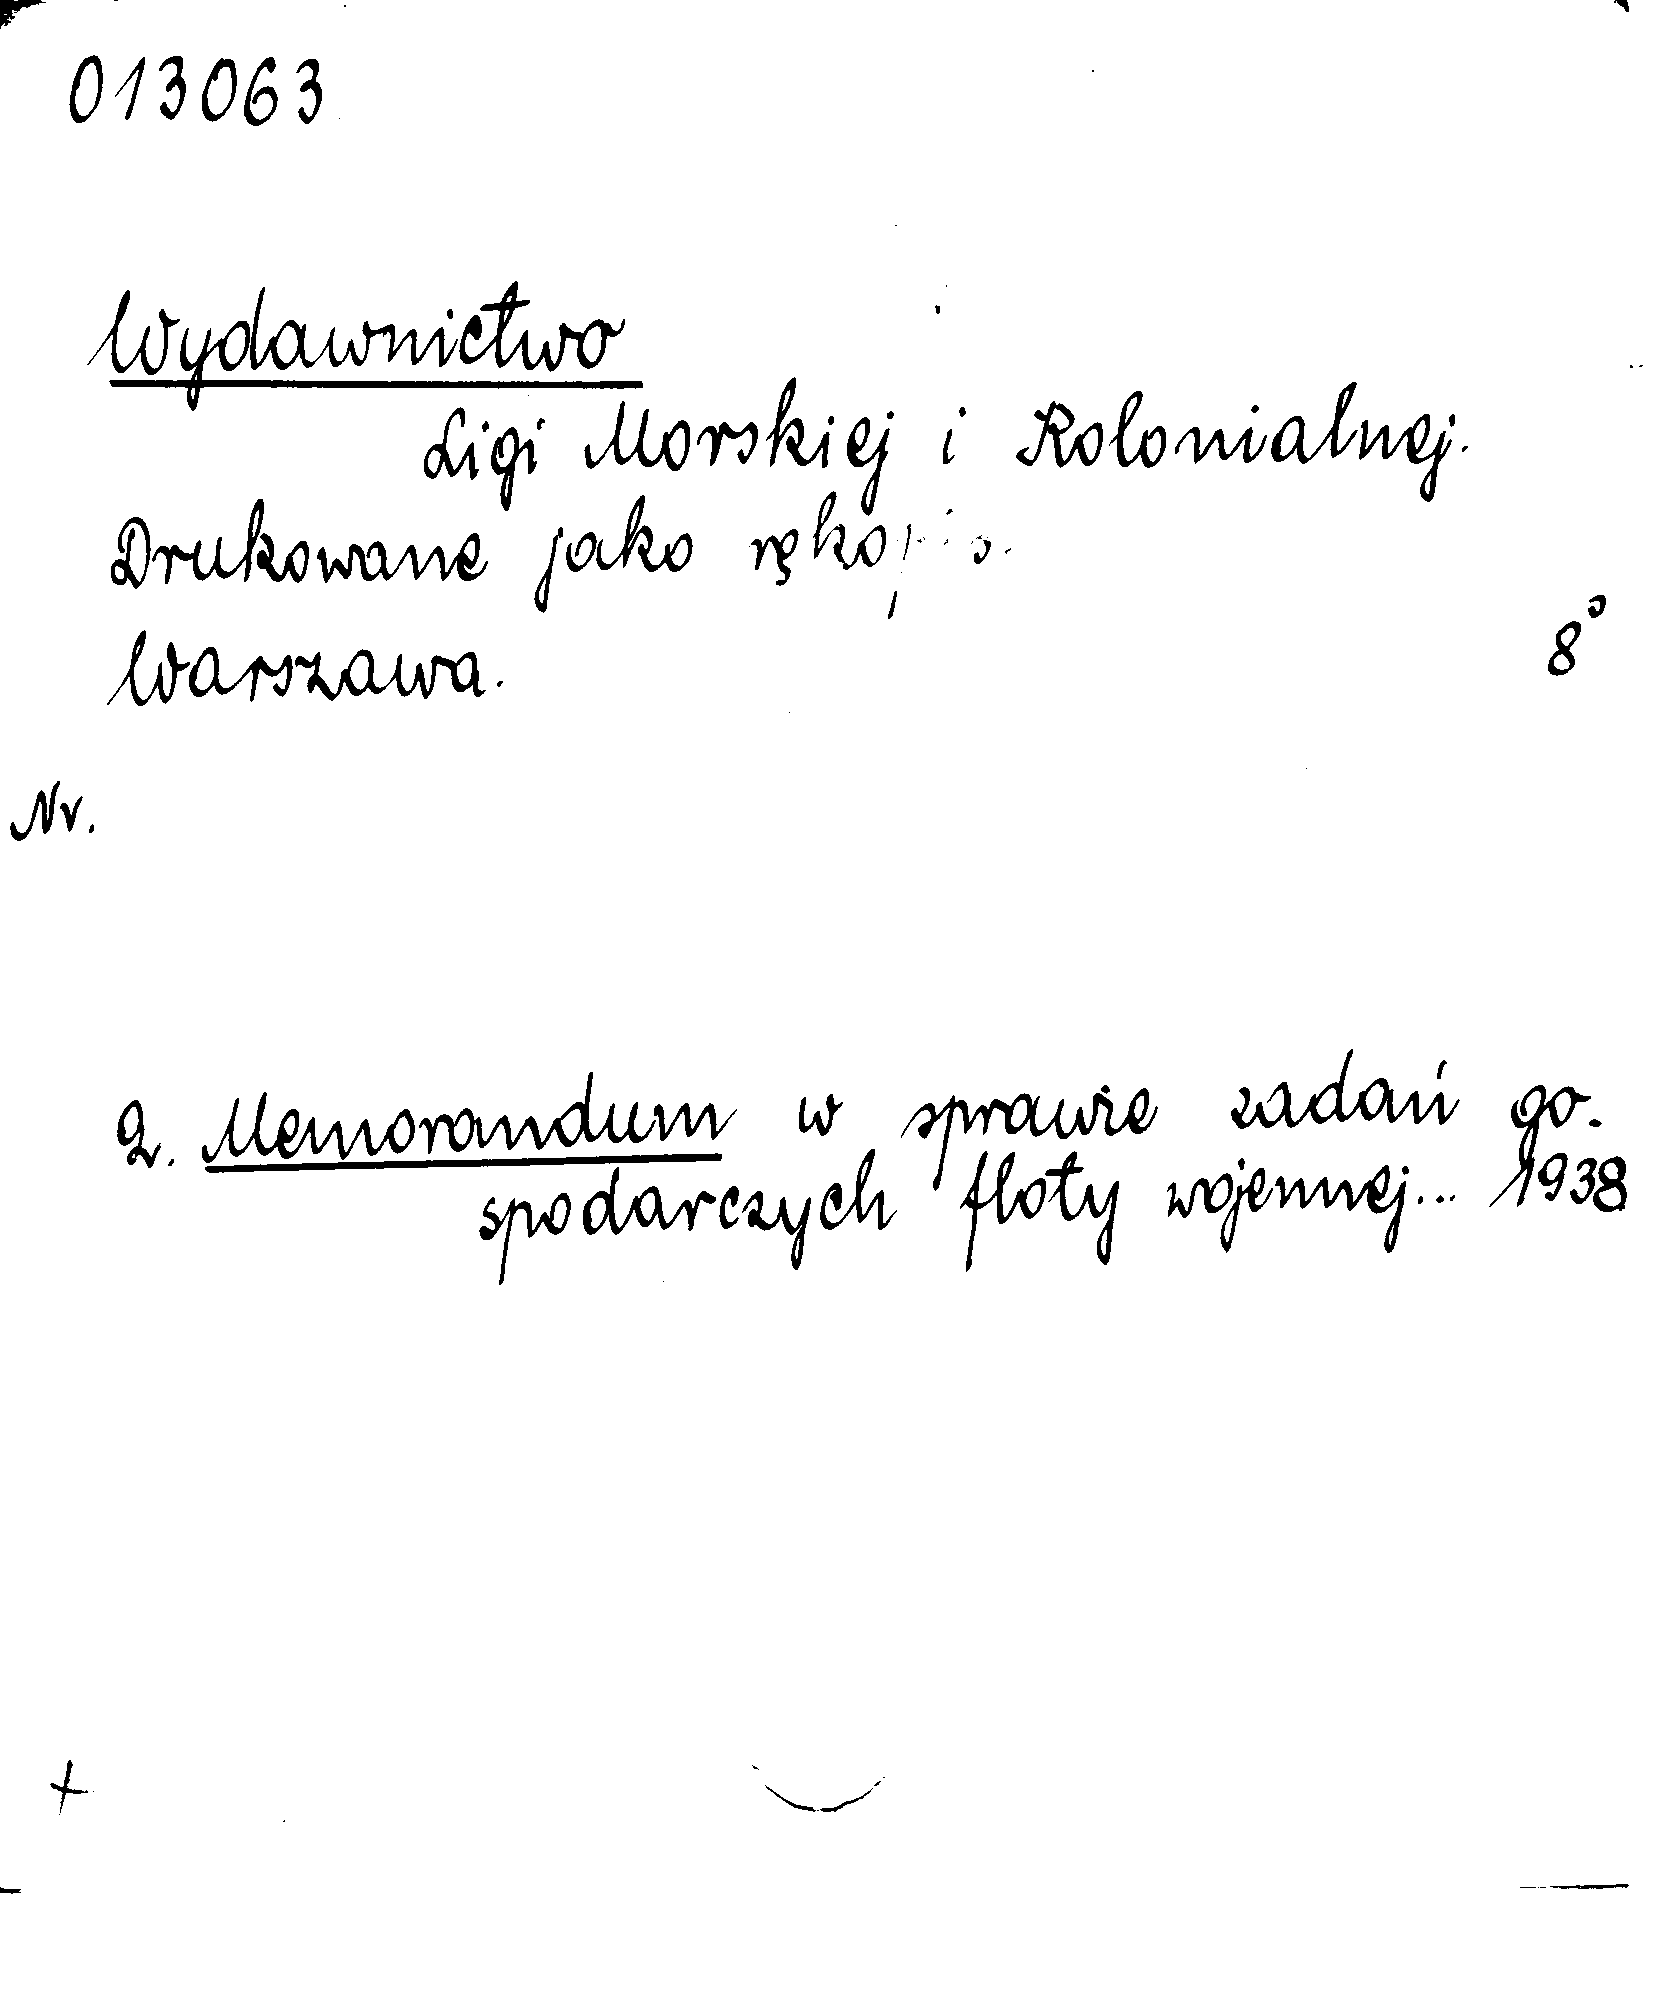 013063
Wydawnictwo
Ligi Morskiej i Kolonialnej.
Drukowane jako rękopis.
Warszawa. 8°
Nr.
2. Memorandum w sprawie zadań go-
spodarczych floty wojennej... 1938
+